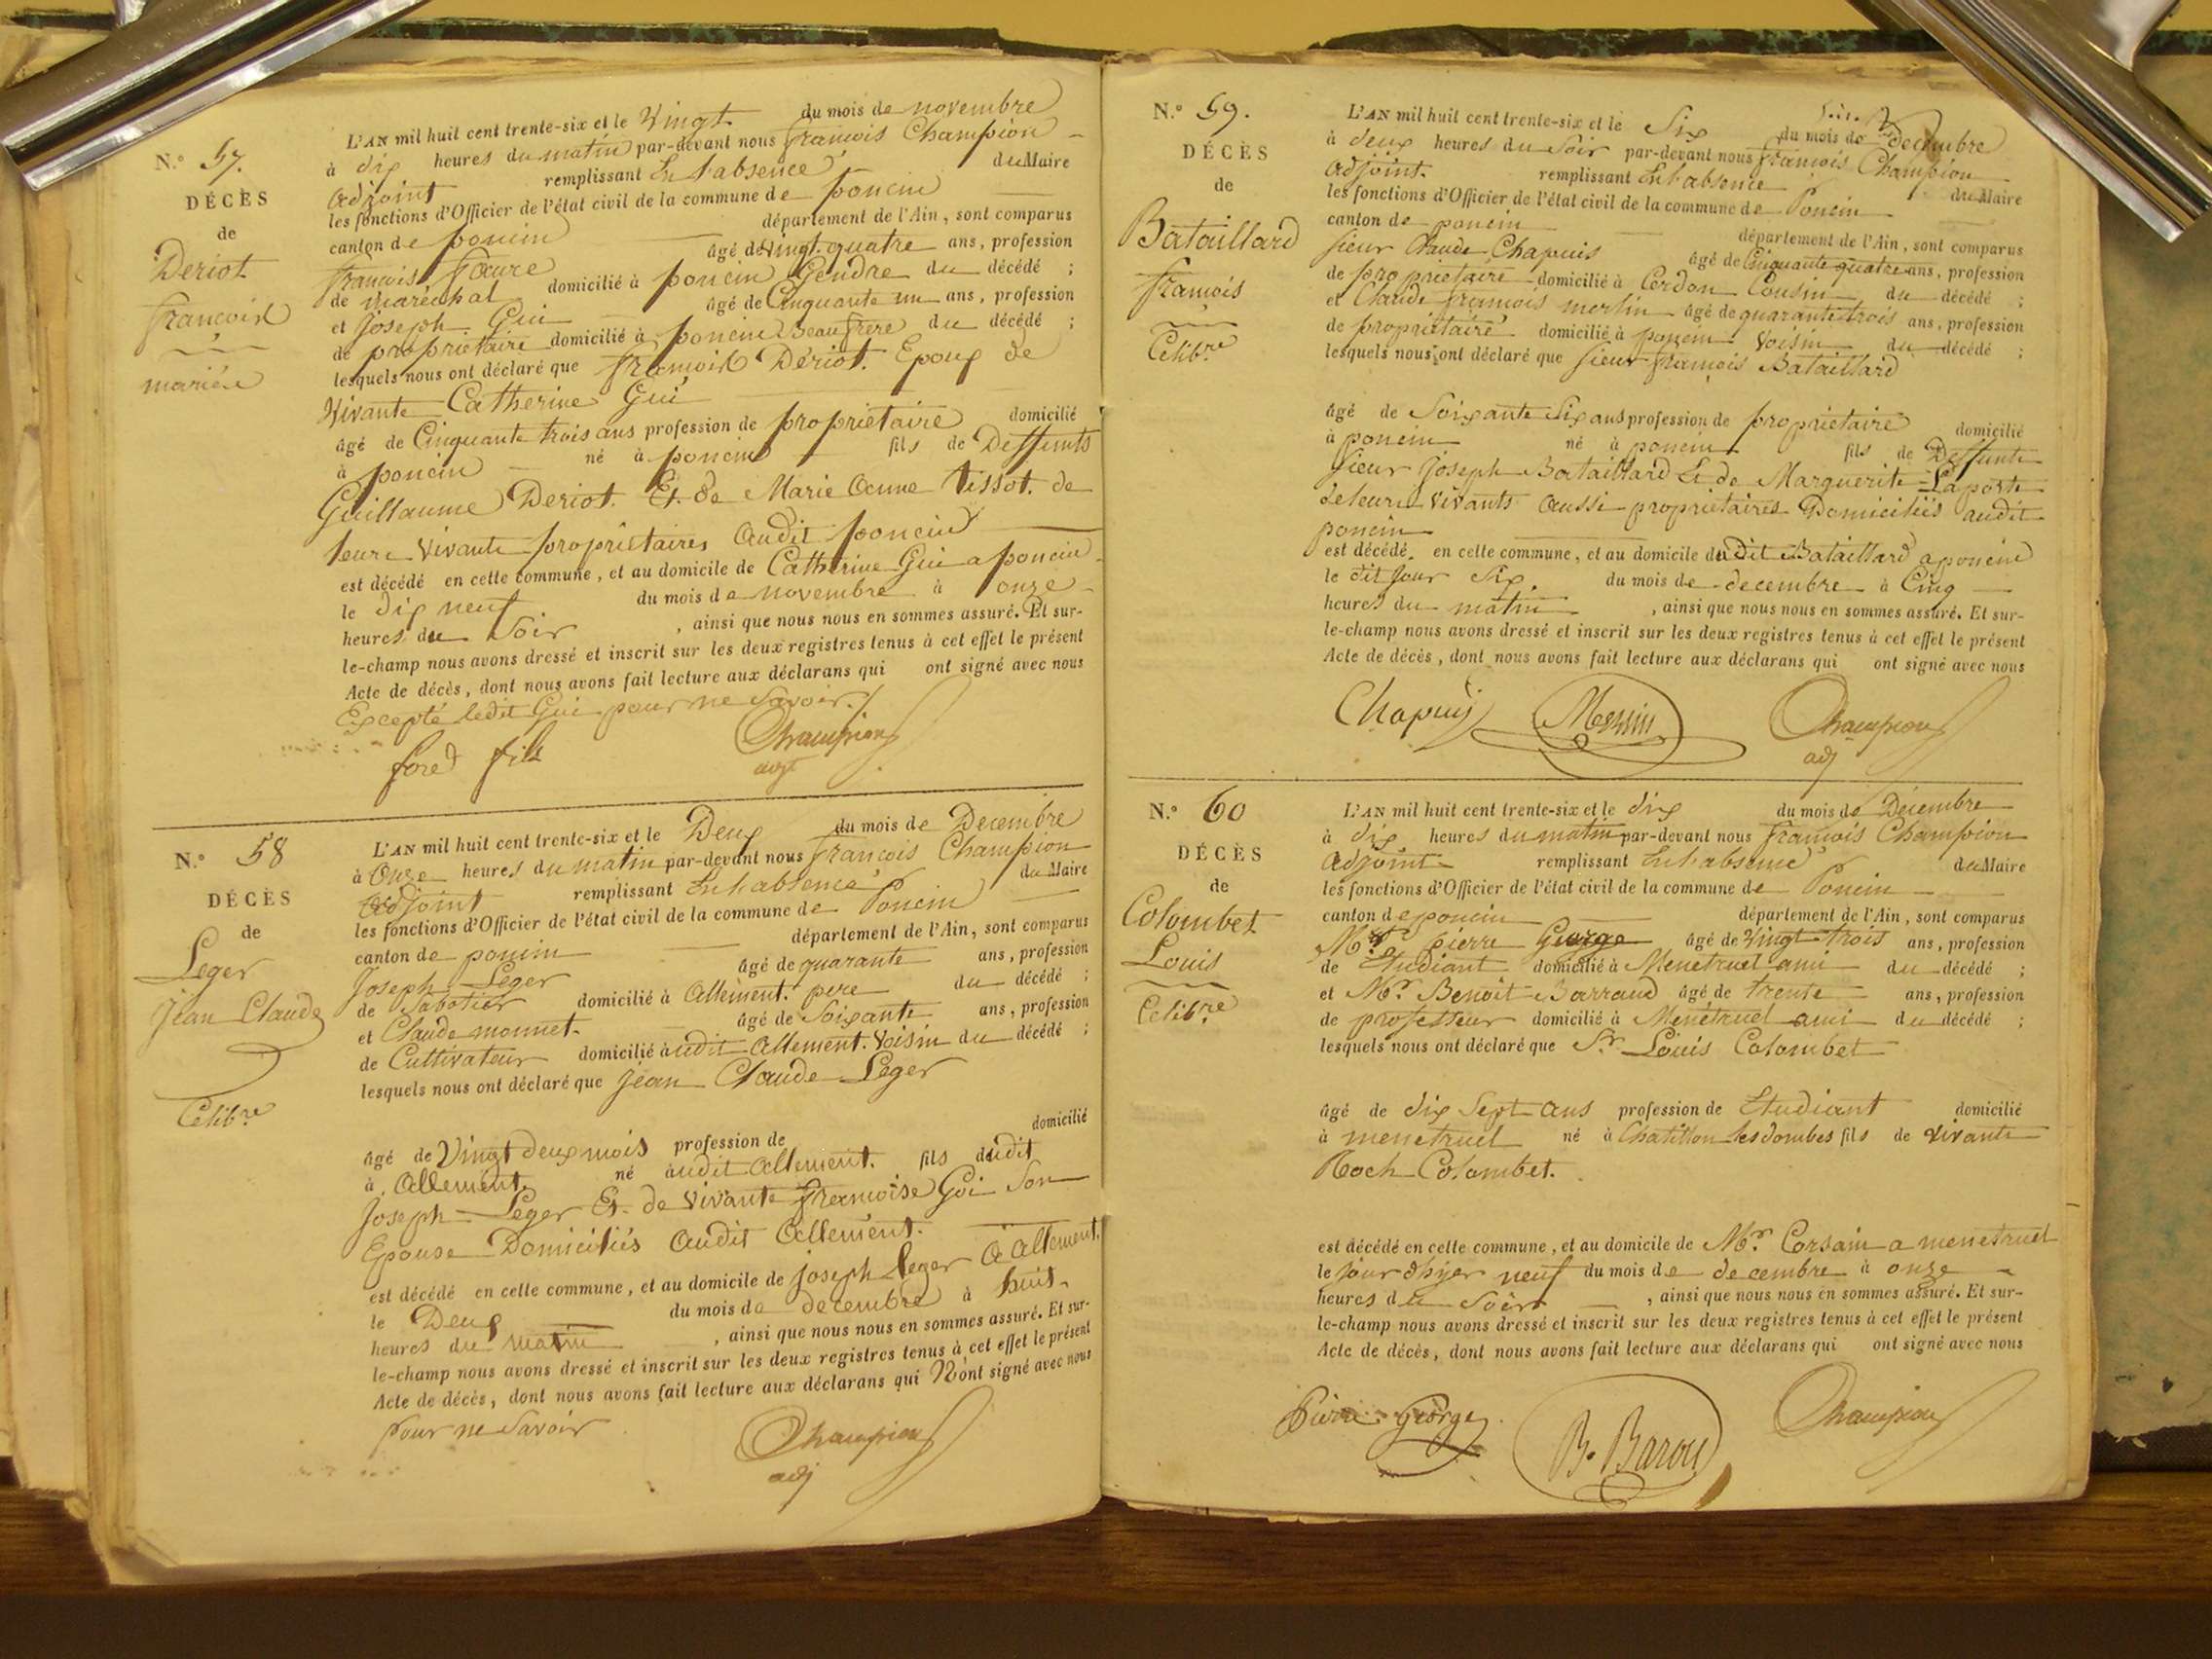 N.° 57.
DÉCÈS
de
Deriot
francois
mariée
L'AN mil huit cent trente-six et le Vingt du mois de novembre
à dix heures du matin par-devant nous francois Champion
adjoint remplissant En l'absence du Maire
les fonctions d'Officier de l'état civil de la commune de poncin
canton de poncin département de l'Ain, sont comparus
francois âgé de vingt quatre ans, profession
de maréchal domicilié à poncin Gendre du décédé ;
et Joseph Gui âgé de Cinquante un ans, profession
de propriétaire domicilié à poncin Beaufrere du décédé ;
lesquels nous ont déclaré que francois Dériot. Epoux de
Vivante Catherine Gui
âgé de Cinquante trois ans profession de propriétaire domicilié
à poncin né à poncin fils de Deffunts
Guillaume Deriot. Et de Marie Anne Tissot. de
leure vivante propriétaires audit poncin
est décédé en cette commune, et au domicile de Catherine Gui a poncin
le dix neuf du mois de novembre à onze
heures du Soir , ainsi que nous nous en sommes assuré. Et sur-
le-champ nous avons dressé et inscrit sur les deux registres tenus à cet effet le présent
Acte de décès, dont nous avons fait lecture aux déclarans qui ont signé avec nous
Excepté ledit Gui pour ne Savoir./
fils Champion
adjt
N.° 58
DÉCÈS
de
Leger
Jean Claude
Celibre
L'AN mil huit cent trente-six et le Deux du mois de Decembre
à Onze heures du matin par-devant nous francois Champion
adjoint remplissant En l'absence du Maire
les fonctions d'Officier de l'état civil de la commune de Poncin
canton de poncin département de l'Ain, sont comparus
Joseph Leger âgé de quarante ans, profession
de Sabotier domicilié à Allement. pere du décédé ;
et Claude monnet. âgé de Soixante ans, profession
de Cultivateur domicilié à udit Allement. Voisin du décédé ;
lesquels nous ont déclaré que Jean Claude Leger
âgé de Vingt deux mois profession de domicilié
à Allement né audit Allement. fils dudit
Joseph Leger Et. de vivante francoise Gui Son
Epouse Domiciliés audit Allement.
est décédé en cette commune, et au domicile de joseph leger a Allement.
le Deux du mois de decembre à huit
heures du matin , ainsi que nous nous en sommes assuré. Et sur-
le-champ nous avons dressé et inscrit sur les deux registres tenus à cet effet le présent
Acte de décès, dont nous avons fait lecture aux déclarans qui N'ont signé avec nous
pour ne Savoir
Champion
adj
N.° 59.
DÉCÈS
de
Bataillard
francois
Celibre
L'AN mil huit cent trente-six et le Six du mois de decembre
à deux heures du Soir par-devant nous francois Champion
adjoint. remplissant En l'absence du Maire
les fonctions d'Officier de l'état civil de la commune de Poncin
canton de poncin département de l'Ain, sont comparus
Sieur Claude Chapuis âgé de Cinquante quatre ans, profession
de propriétaire domicilié à Cerdon Cousin du décédé ;
et Claude francois merlin âgé de quarante trois ans, profession
de propriétaire domicilié à poncin Voisin du décédé ;
lesquels nous ont déclaré que Sieur francois Bataillard
âgé de Soixante Six ans profession de propriétaire domicilié
à poncin né à poncin fils de Deffunte
Sieur Joseph Bataillard Et de Marguerite Laporte
deleure vivants aussi propriétaires Domiciliés audit
poncin
est décédé en cette commune, et au domicile dudit Bataillard a poncin
le dit jour Six. du mois de decembre à Cinq
heures du matin , ainsi que nous nous en sommes assuré. Et sur-
le-champ nous avons dressé et inscrit sur les deux registres tenus à cet effet le présent
Acte de décès, dont nous avons fait lecture aux déclarans qui ont signé avec nous
Chapuis Champion
adj
N.° 60
DÉCÈS
de
Colombet
Louis
Celibre
L'AN mil huit cent trente-six et le dix du mois de Décembre
à dix heures du matin par-devant nous francois Champion
adjoint remplissant En l'absence du Maire
les fonctions d'Officier de l'état civil de la commune de Poncin
canton de poncin département de l'Ain, sont comparus
Mr. pierre George âgé de Vingt trois ans, profession
de Etudiant domicilié à Menetruel ami du décédé ;
et Mr. Benoit Barraud âgé de trente ans, profession
de professeur domicilié à Menétruel ami du décédé ;
lesquels nous ont déclaré que Sr. Louis Colombet
âgé de dix Sept ans profession de Etudiant domicilié
à menetruel né à Chatillon les dombes fils de vivante
Roch Colombet.
est décédé en cette commune, et au domicile de Mr. Corsain a menetruel
le jour d'hyer neuf du mois de decembre à onze
heures du Soir , ainsi que nous nous en sommes assuré. Et sur-
le-champ nous avons dressé et inscrit sur les deux registres tenus à cet effet le présent
Acte de décès, dont nous avons fait lecture aux déclarans qui ont signé avec nous
Pierre George B. Barou Champion